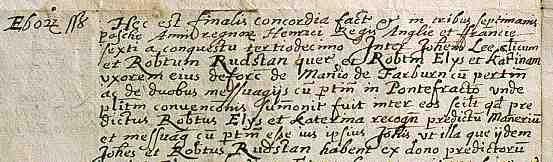 Ebor ss Hec est finalis concordia fact in tribus septimanis
pasche Anno regnor Henrici Regis Anglie et ffrancie
sexti a conquestu tertiodecimo Inter Johem Lee clicum
et Robtum Rudstan quer et Robtm Elys et Katinam
vxorem eius deforc de Manio de Farburn cu pertin
ac de duobus messuagijs cu ptin in Pontefracto vnde
plitm convenconis sumonit fuit inter eos scilt qd pre
dictus Robtus Elys et Katerina recogn predictu Manerium
et messuag cu ptin esse ius ipsius Johis vt illa que ijdem
Johes et Robtus Rudstan habent ex dono predictoru